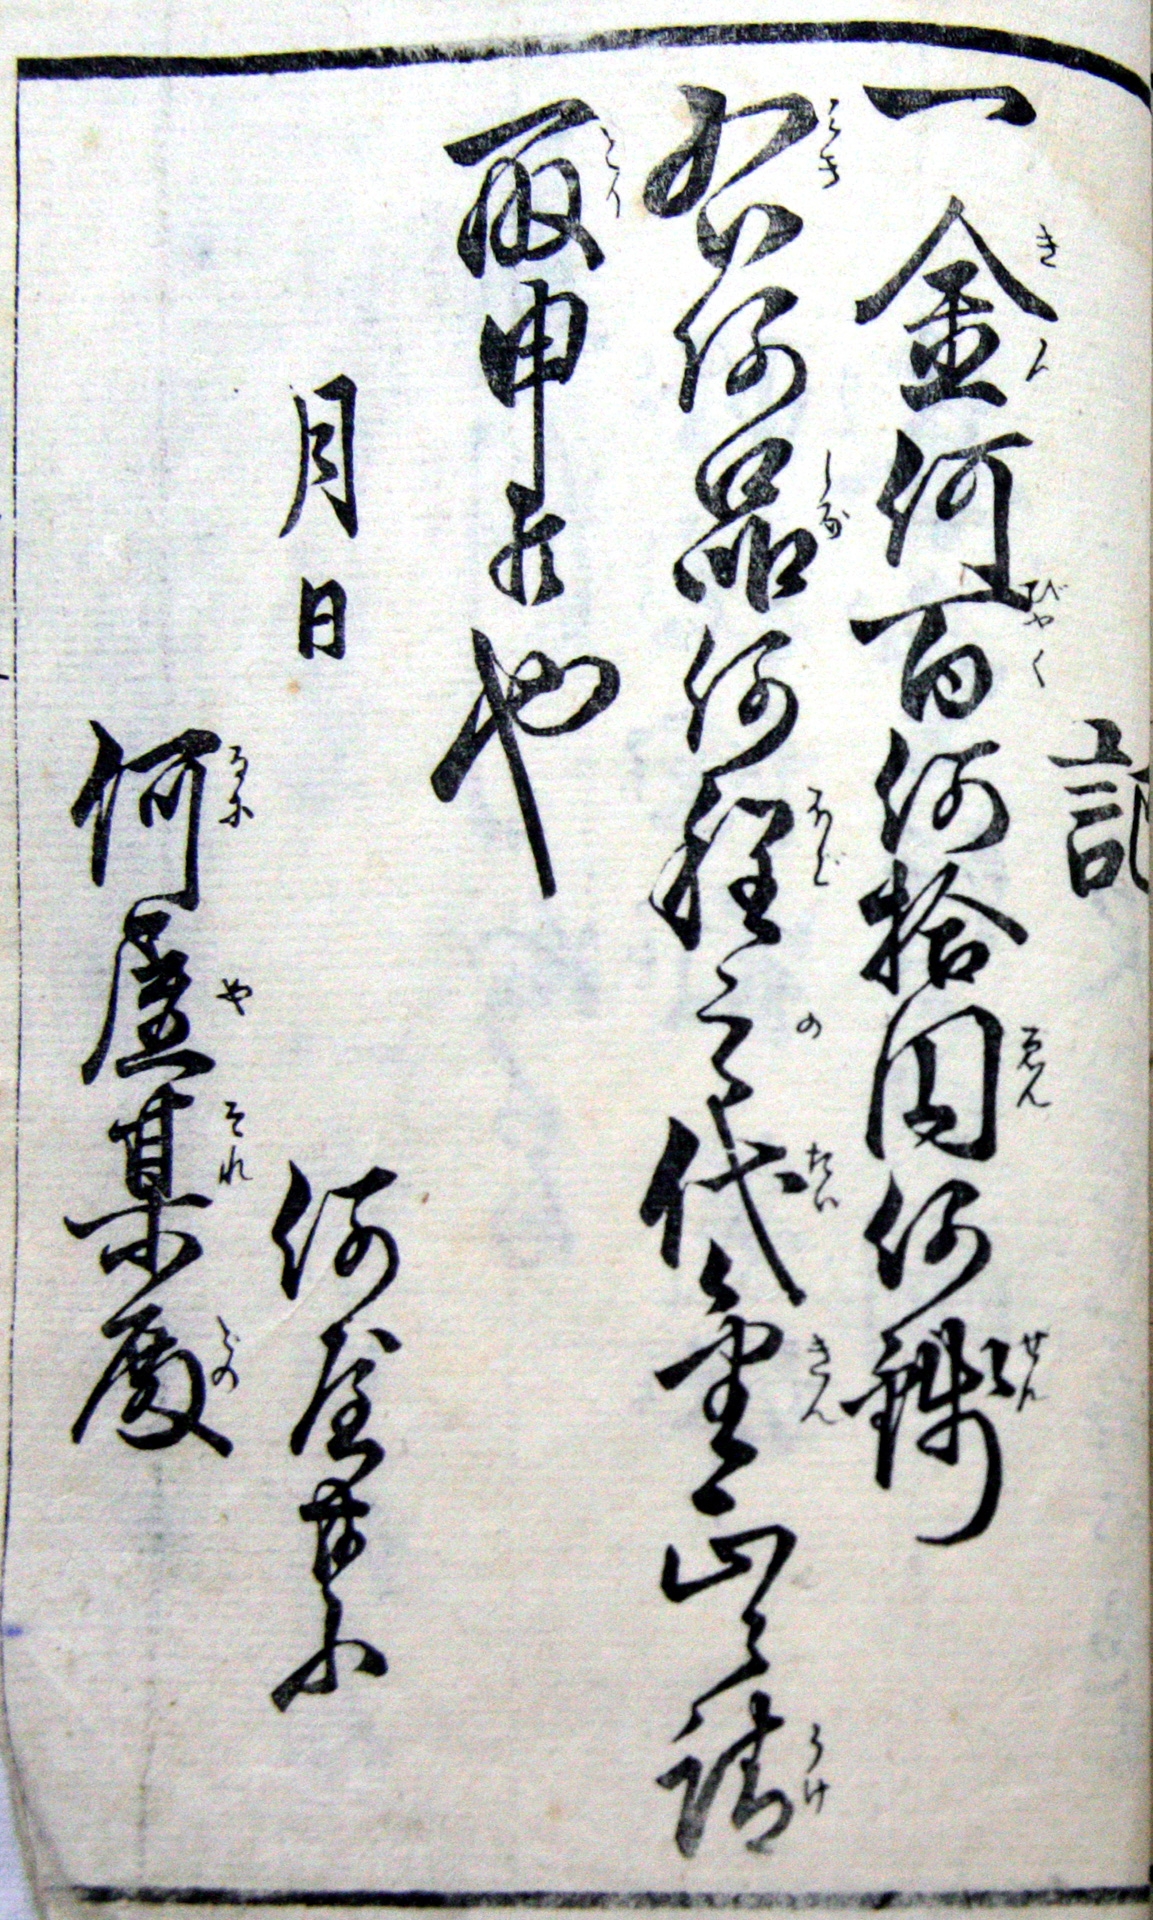 記
一金何百何拾圓何錢
右ハ何品何程之代金正ニ請
取申候也
月日
何屋某
何屋某殿